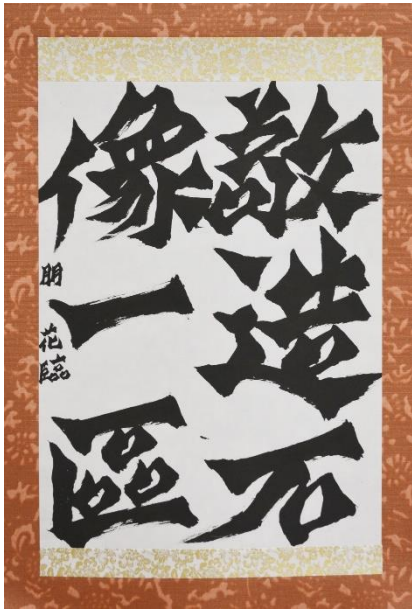 敬造石
像一區
明花臨